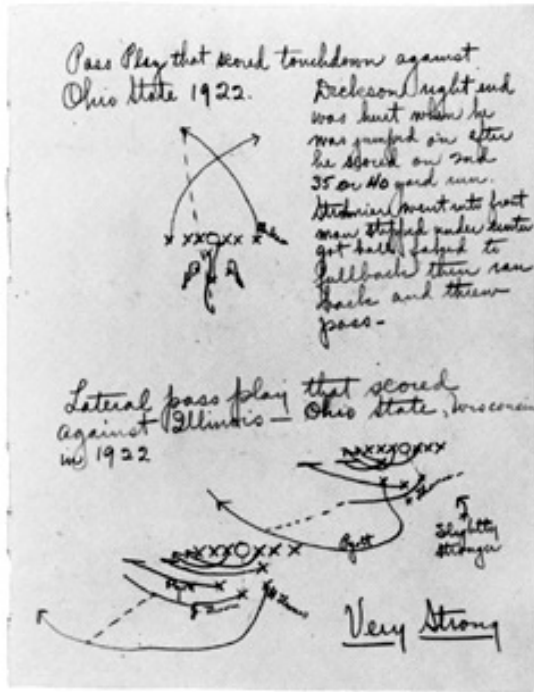 Pass Play that scored touchdown against
Ohio State 1922.
Dickson right end
was hurt when he
was jumped on after
he scored on 2nd
35 or 40 yard run.
went into front
man stepped under center
got ball, faked to
fullback then ran
back and threw
pass-
Lateral pass play that scored
against Illinois - Ohio State, Wisconsin
in 1922
Pyott
Slightly
stronger
Very Strong